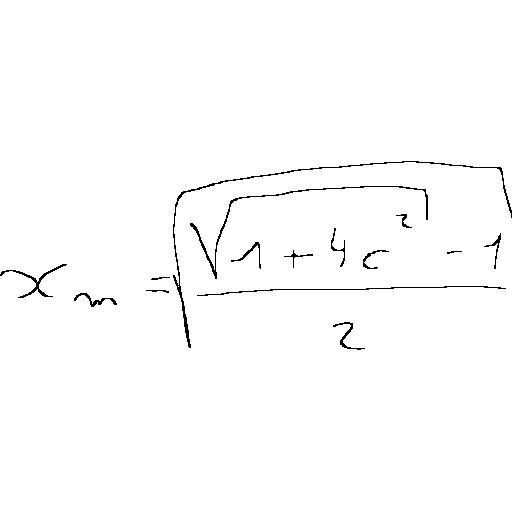 x_m = \sqrt{\frac{\sqrt{1+4c^2}-1}{2}}